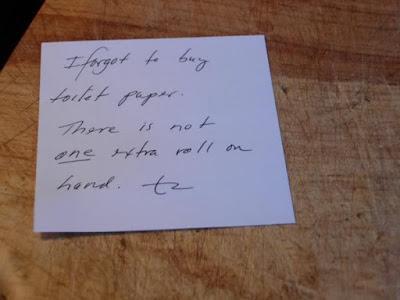 I forgot to buy
toilet paper.
There is not
one extra roll on
hand.